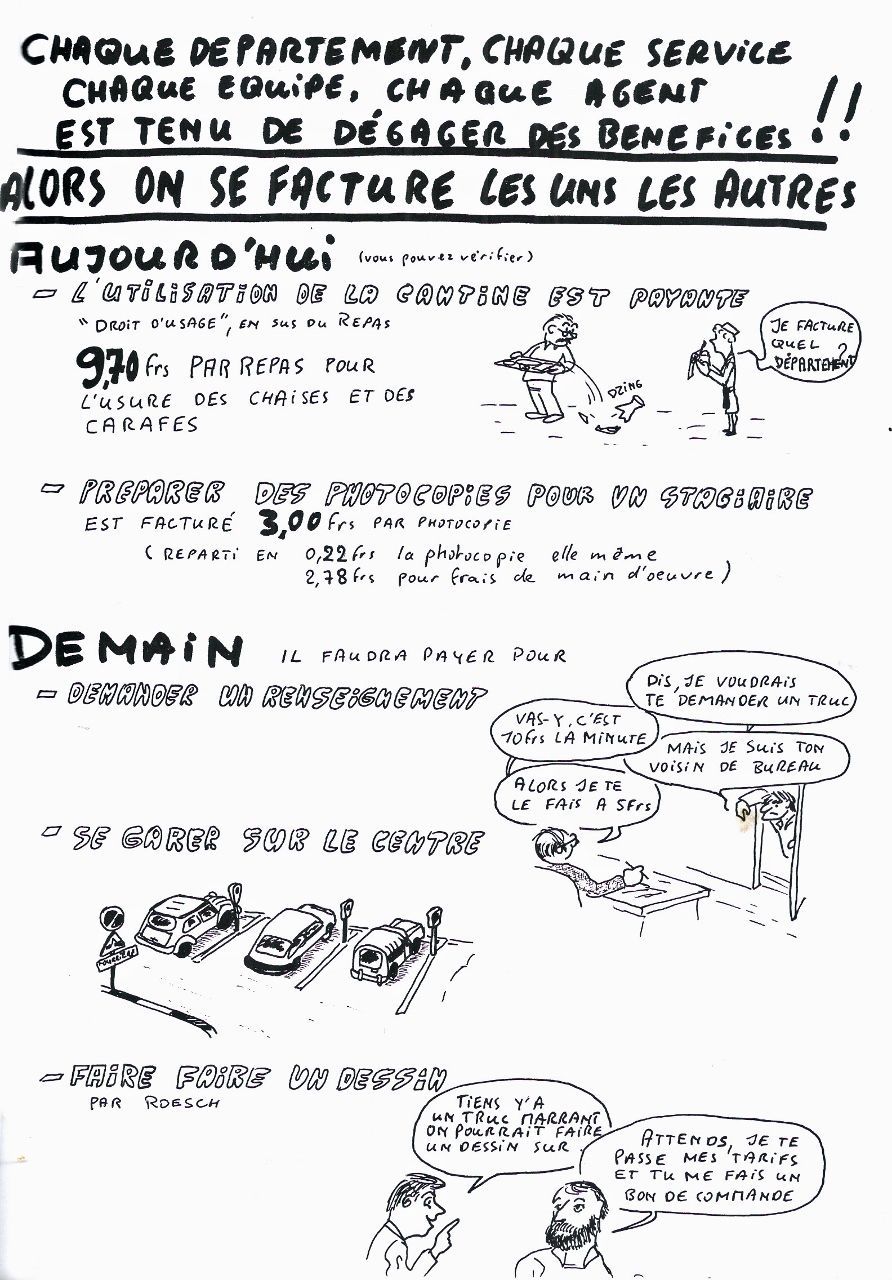 CHAQUE DEPARTEMENT, CHAQUE SERVICE
CHAQUE EQUIPE, CHAQUE AGENT
EST TENU DE DÉGAGER DES BENEFICES !!
ALORS ON SE FACTURE LES UNS LES AUTRES
AUJOURD'HUI (vous pouvez vérifier)
- L'UTILISATION DE LA CANTINE EST PAYANTE
"DROIT D'USAGE", EN SUS DU REPAS
9,70 frs PAR REPAS POUR
L'USURE DES CHAISES ET DES
CARAFES
DZING
JE FACTURE
QUEL
DÉPARTEMENT ?
- PREPARER DES PHOTOCOPIES POUR UN STAGIAIRE
EST FACTURÉ 3,00 frs PAR PHOTOCOPIE
( REPARTI EN 0,22 frs la photocopie elle même
2,78 frs pour frais de main d'oeuvre )
DEMAIN IL FAUDRA PAYER POUR
- DEMANDER UN RENSEIGNEMENT
DIS, JE VOUDRAIS
TE DEMANDER UN TRUC
VAS-Y, C'EST
10 frs LA MINUTE
MAIS JE SUIS TON
VOISIN DE BUREAU
ALORS JE TE
LE FAIS A 5 Frs
- SE GARER SUR LE CENTRE
FOURRIERE
- FAIRE FAIRE UN DESSIN
PAR ROESCH
TIENS Y'A
UN TRUC MARRANT
ON POURRAIT FAIRE
UN DESSIN SUR
ATTENDS, JE TE
PASSE MES TARIFS
ET TU ME FAIS UN
BON DE COMMANDE